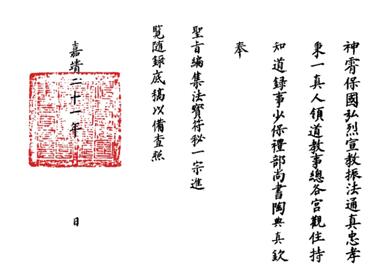 神霄保國弘烈宣教振法通真忠孝
秉一真人領道教事總各宮觀住持
知道録事少保禮部尚書陶典真欽
奉
聖旨編集法寳符秘一宗進
覧随録底稿以備查照
嘉靖二十一年 月 日